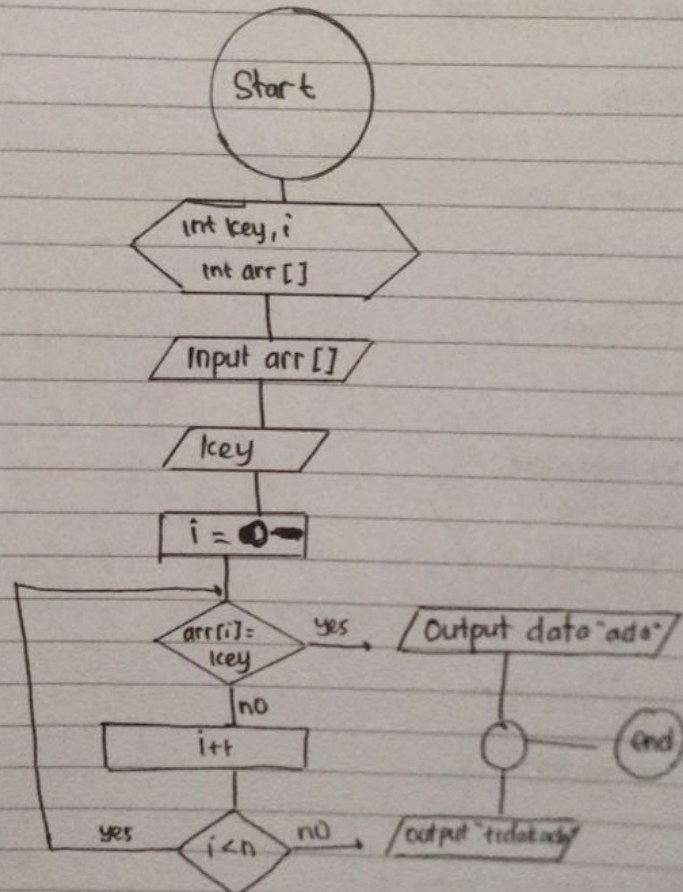 Start
int key, i
int arr []
Input arr []
key
i = 0
arr[i] =
key
yes
Output data "ada"
no
i++
end
yes
i < n
no
output "tidak ada"